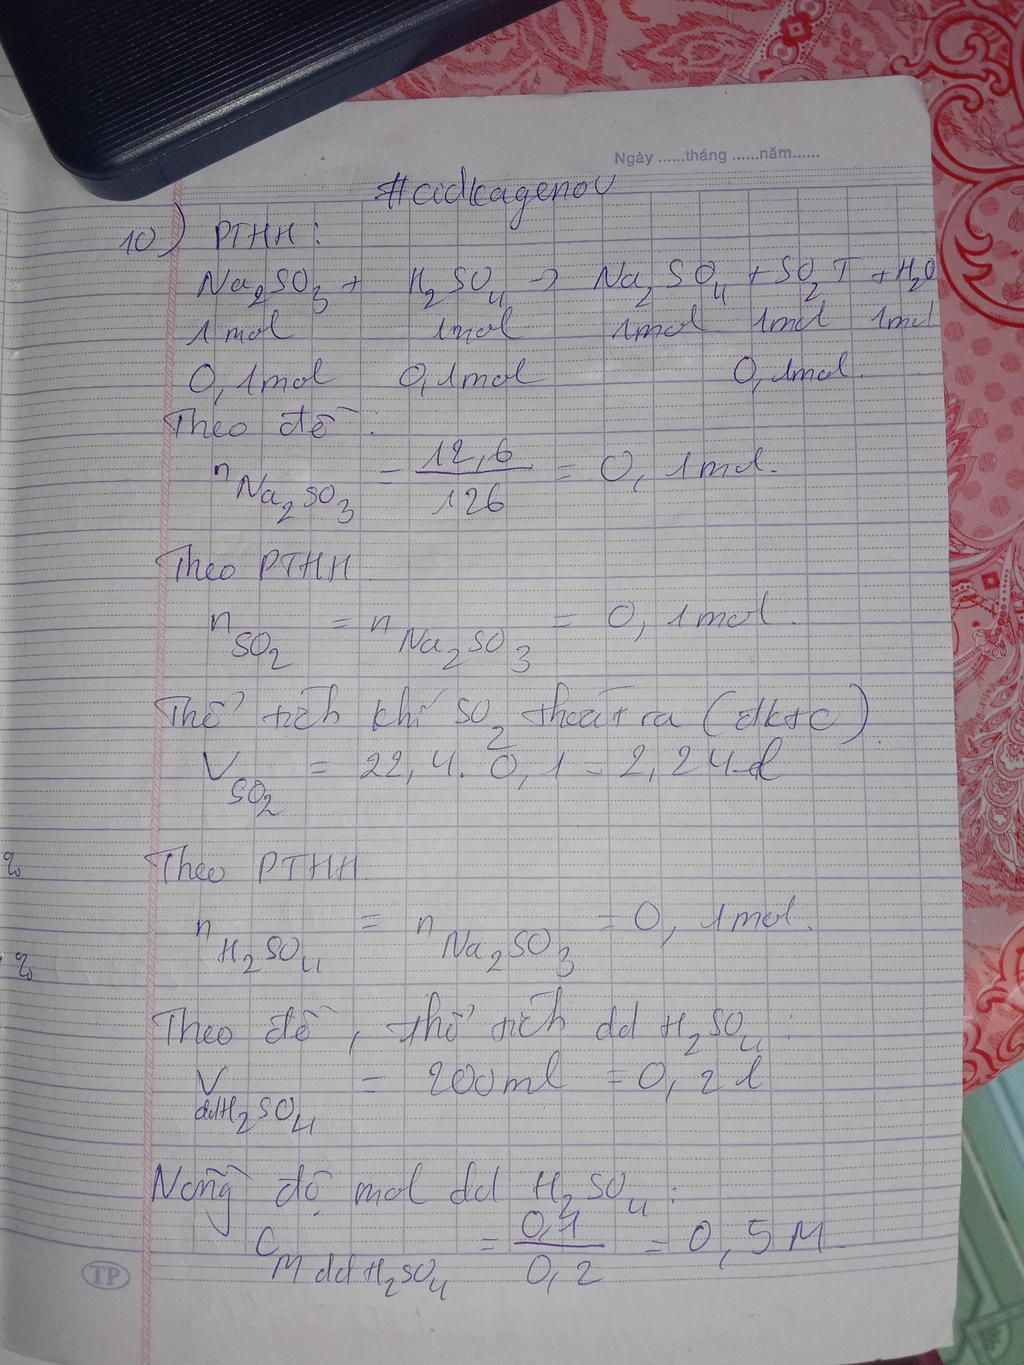 Ngày ......tháng ......năm......
#cidkagenou
10) PTHH:
Na2SO3 + H2SO4 → Na2SO4 + SO2↑ + H2O
1mol 1mol 1mol 1mol 1mol
0,1mol 0,1mol 0,1mol.
Theo đề:
nNa2SO3 = 12,6/126 = 0,1mol.
Theo PTHH
nSO2 = nNa2SO3 = 0,1mol.
Thể tích khí SO2 thoát ra (đktc).
VSO2 = 22,4. 0,1 = 2,24l
Theo PTHH.
nH2SO4 = nNa2SO3 = 0,1mol.
Theo đề, thể tích dd H2SO4:
VddH2SO4 = 200ml = 0,2l
Nồng độ mol dd H2SO4:
CM ddH2SO4 = 0,1/0,2 = 0,5M
TP